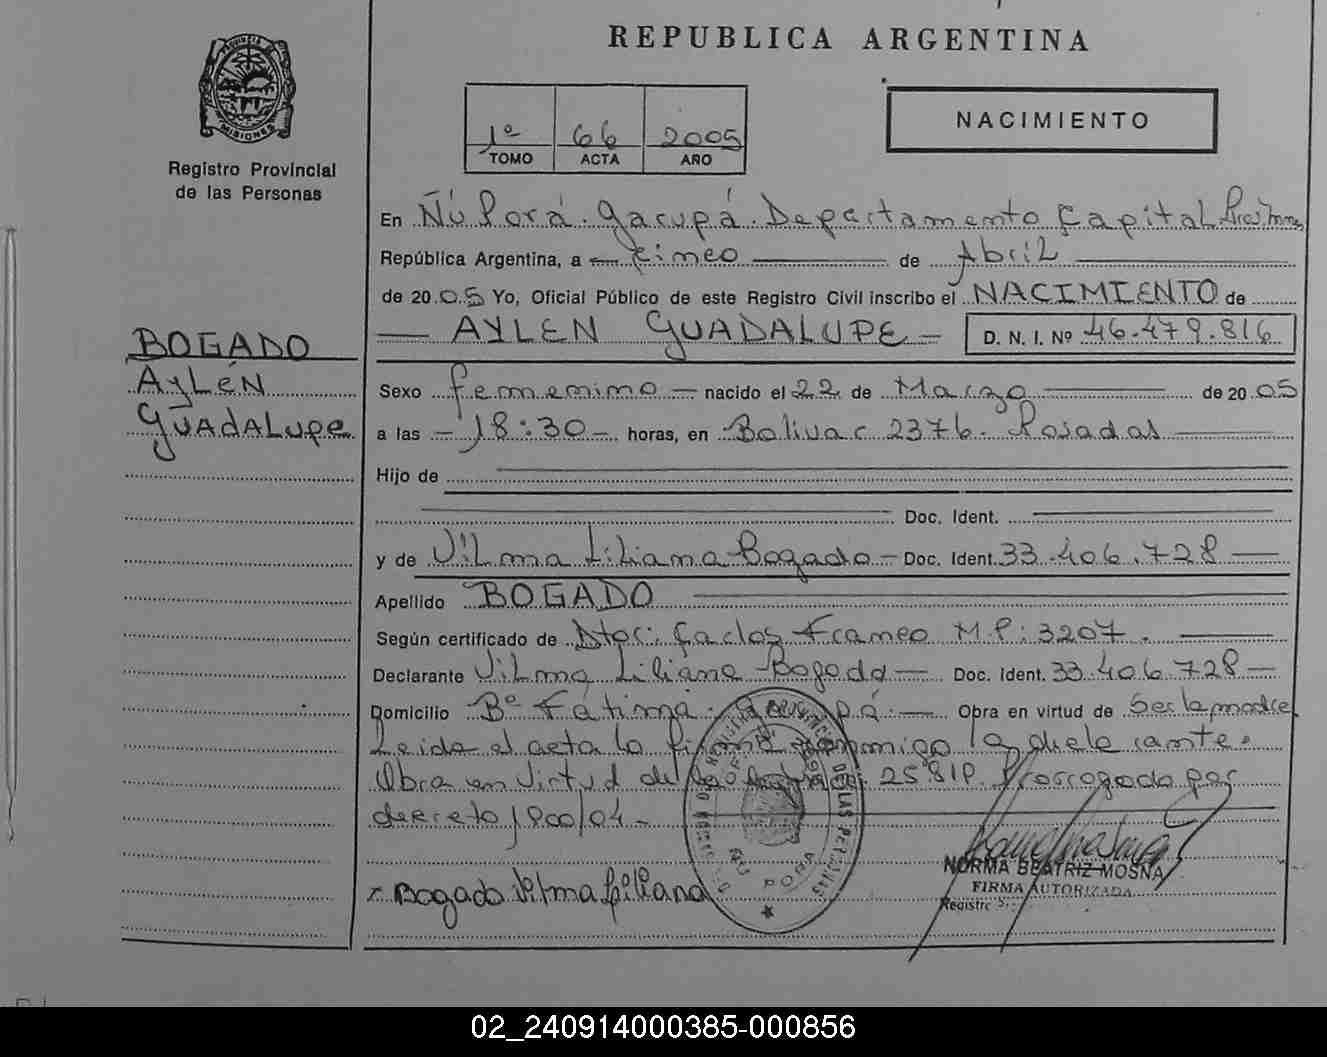 REPUBLICA ARGENTINA
PROVINCIA DE
MISIONES
Registro Provincial
de las Personas
1º 66 2005
TOMO ACTA AÑO
NACIMIENTO
En Ñú Porá. Garupá. Departamento Capital
República Argentina, a cinco de Abril
de 2005 Yo, Oficial Público de este Registro Civil inscribo el NACIMIENTO de
AYLEN GUADALUPE D. N. I. Nº 46.479.816
BOGADO
AyLÉN
GUAdALupe
Sexo femenino nacido el 22 de Marzo de 2005
a las 18:30 horas, en Bolivar 2376. Posadas
Hijo de
Doc. Ident.
y de Vilma Liliana Bogado Doc. Ident. 33.406.728
Apellido BOGADO
Según certificado de Dtor: Carlos Franco M.P: 3207.
Declarante Vilma Liliana Bogado Doc. Ident. 33.406.728
Domicilio Bº Fátima. Garupá. Obra en virtud de Ser la madre
Leida el acta la firma conmigo la declarante.
Obra en virtud de 2581P. Prorrogado por
decreto 1900/04-
x Bogado Vilma Liliana
NORMA BEATRIZ MOSNA
FIRMA AUTORIZADA
02_240914000385-000856